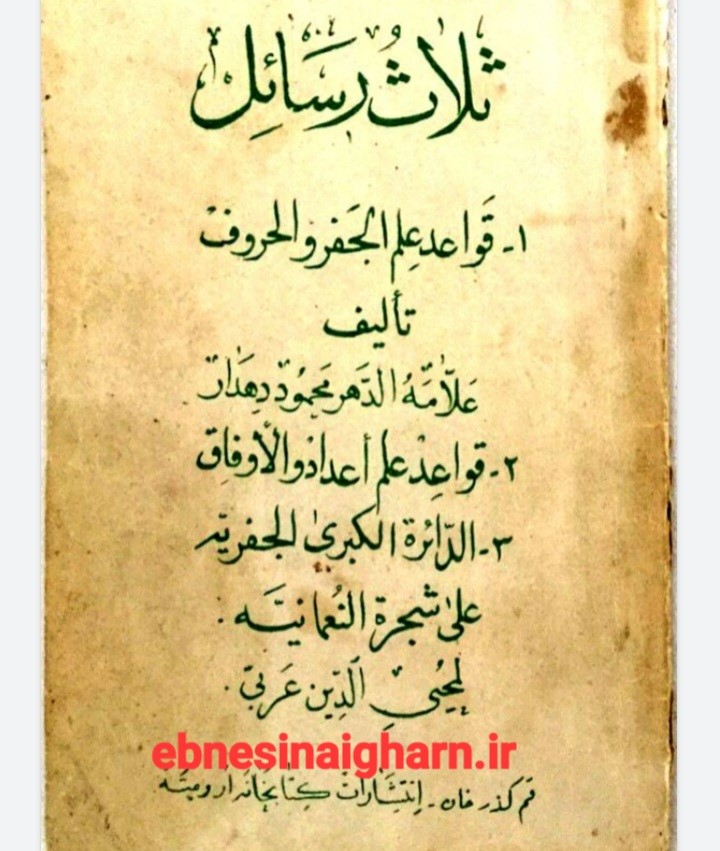 ثلاث رسائل
۱- قواعد علم الجفر والحروف
تأليف
علّامّهُ الدّهر محمود دهدار
۲- قواعد علم أعداد والأوفاق
۳- الدّائرة الكبرىٰ الجفريّه
علىٰ شجرة النُعمانيّه .
لمحيي الدّين عَربيّ .
ebnesinaigharn.ir
قم گذر خان - انتشارات كتابخانه اروميّه